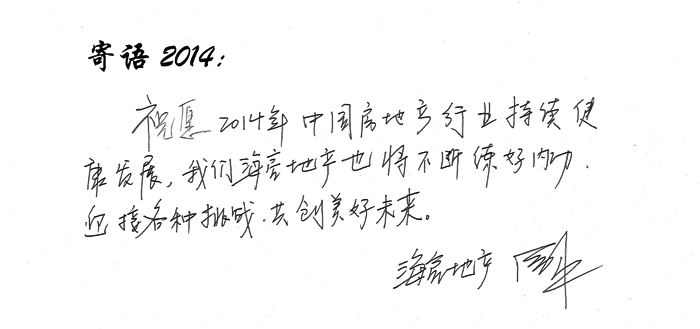 寄语 2014：
祝愿2014年中国房地产行业持续健
康发展，我们海亮地产也将不断练好内功，
迎接各种挑战，共创美好未来。
海亮地产